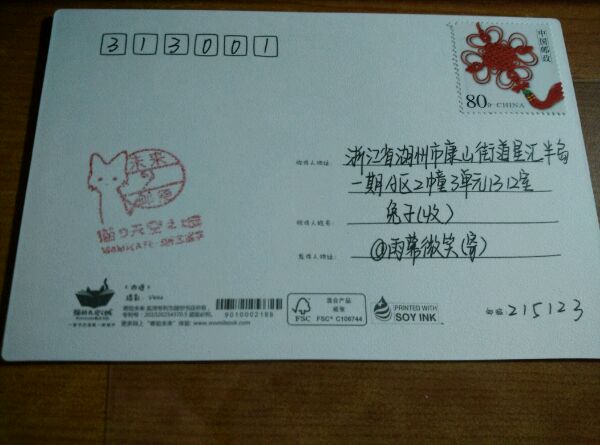 313001
中国邮政
80分 CHINA
收件人地址:
浙江省湖州市康山街道星汇半岛
一期B区2幢3单元1312室
收件人姓名:
兔子(收)
寄件人地址:
@雨幕微笑(寄)
邮编 215123
未来
の
猫の天空之城
摄影: Vena
9010002188
FSC
混合产品
纸张
FSC® C106744
PRINTED WITH
SOY INK